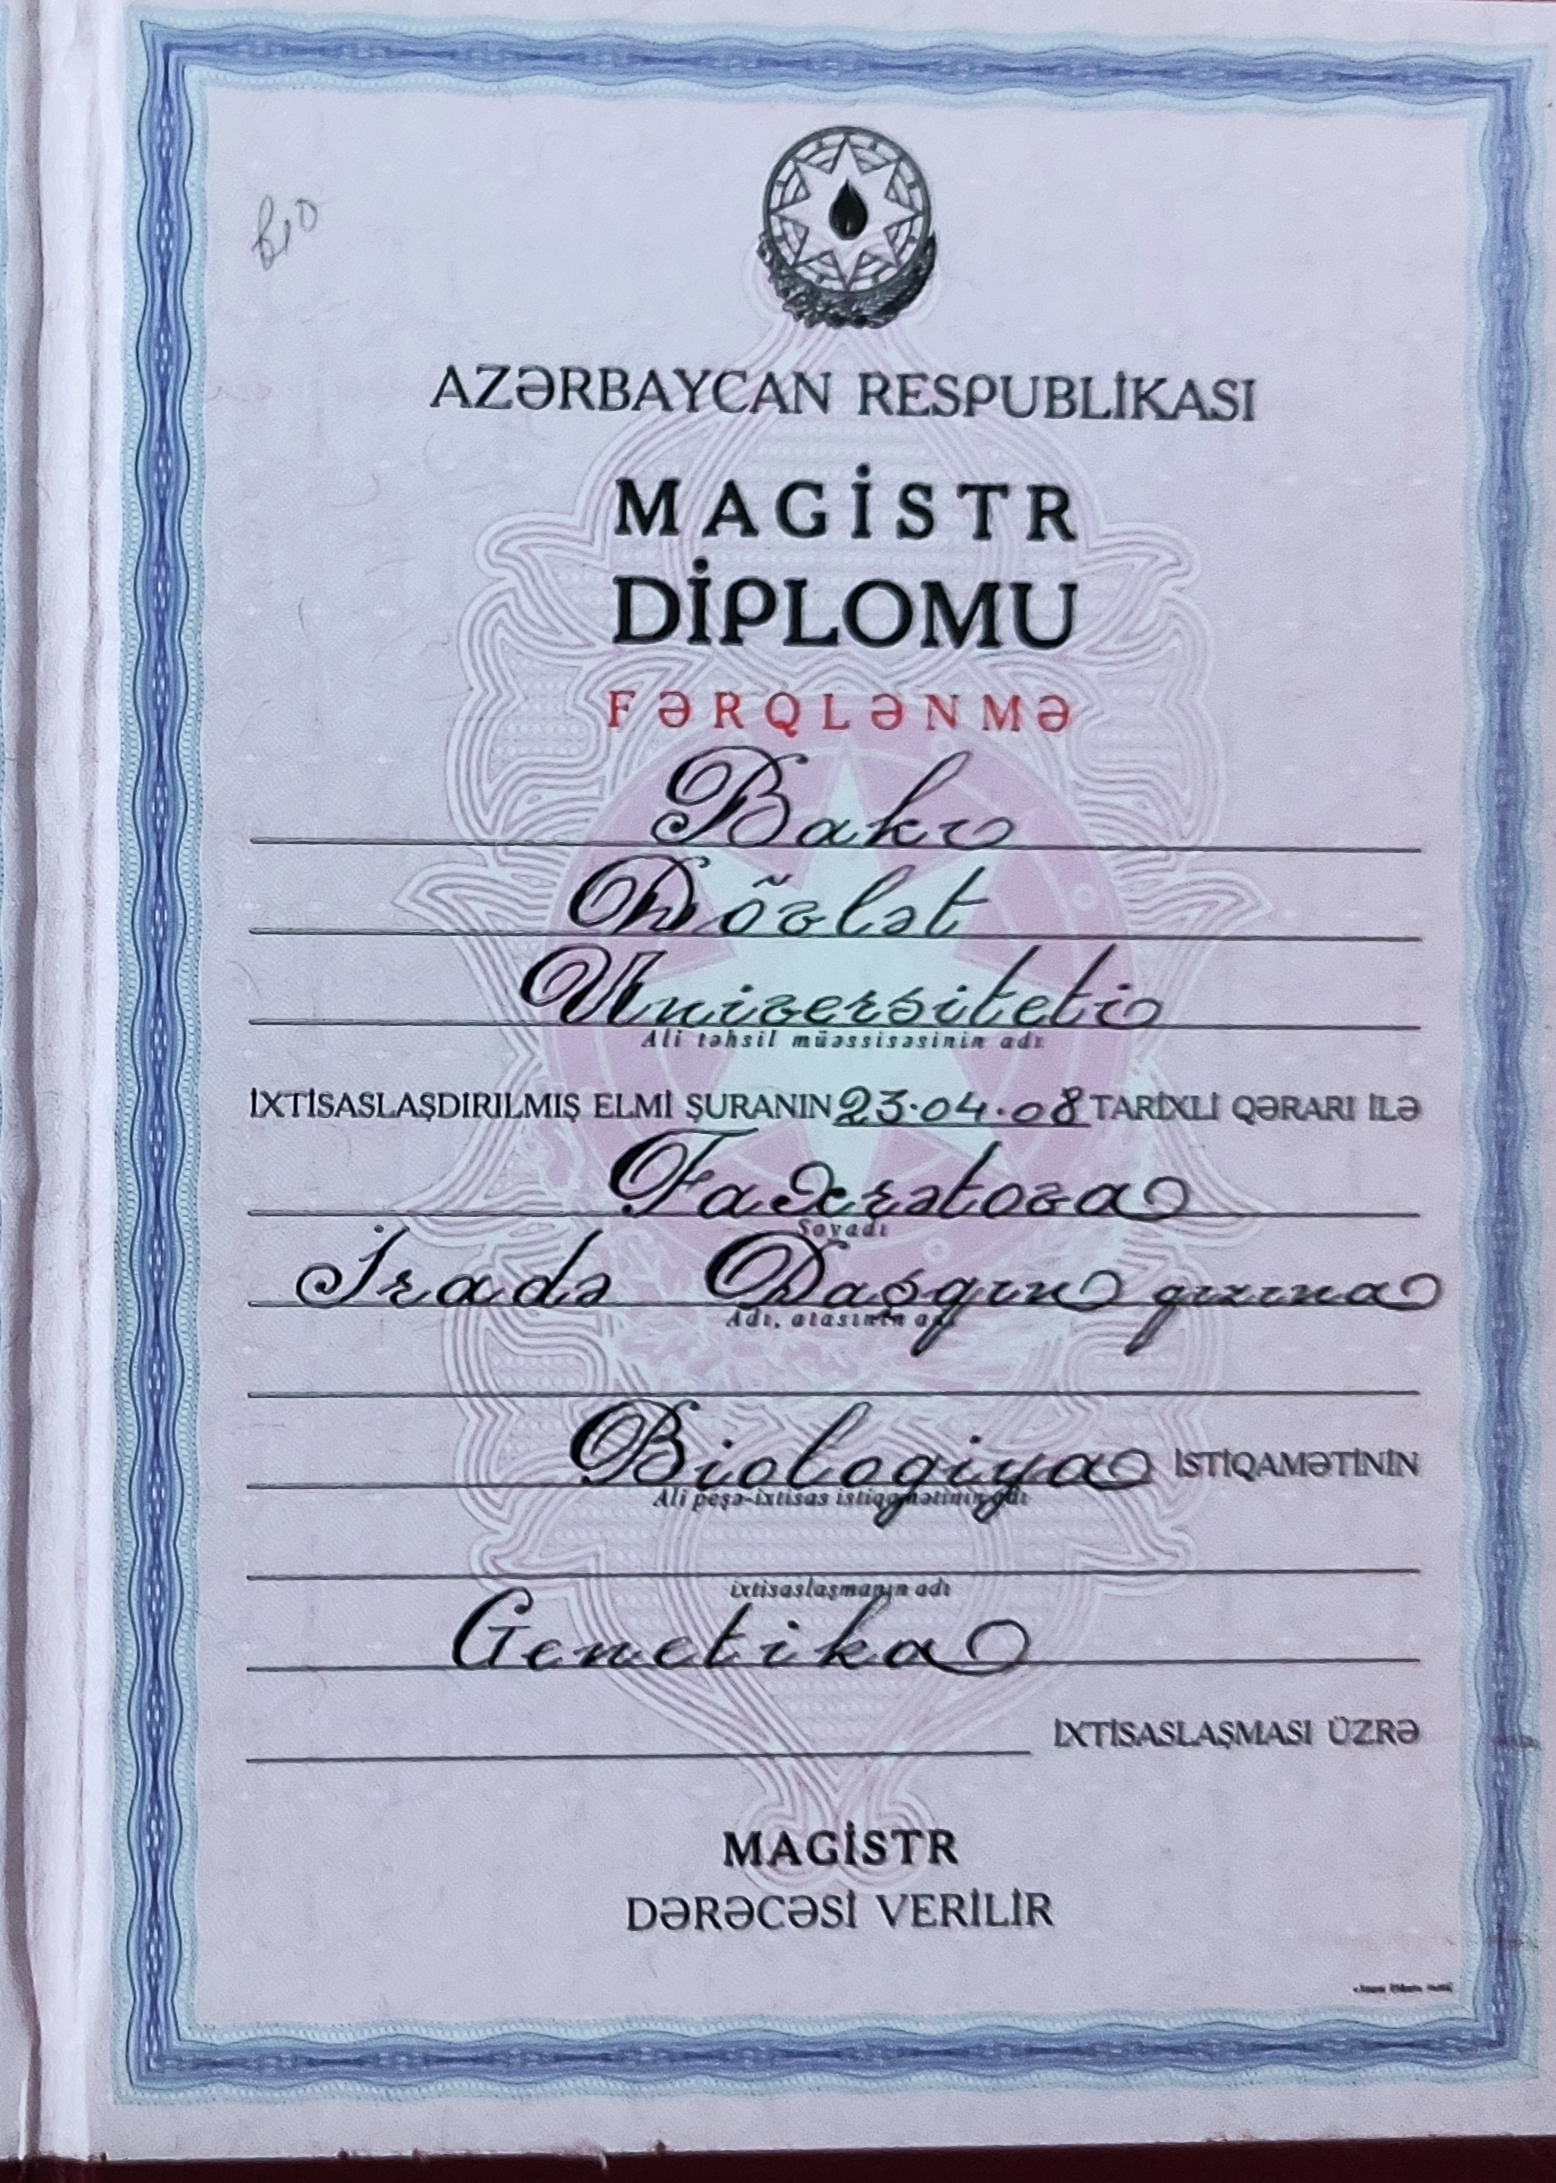 AZƏRBAYCAN RESPUBLİKASI
MAGİSTR
DİPLOMU
FƏRQLƏNMƏ
Bakı
Dövlət
Universiteti
Ali təhsil müəssisəsinin adı
İXTİSASLAŞDIRILMIŞ ELMİ ŞURANIN 23.04.08 TARİXLİ QƏRARI İLƏ
Faxrətova
Soyadı
İradə Daşqın qızına
Adı, atasının adı
Biologiya İSTİQAMƏTİNİN
Ali peşə-ixtisas istiqamətinin adı
ixtisaslaşmanın adı
Genetika
İXTİSASLAŞMASI ÜZRƏ
MAGİSTR
DƏRƏCƏSİ VERİLİR